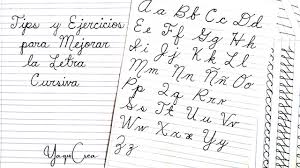 Tips y Ejercicios
para Mejorar
la Letra
Cursiva
YaquiCrea
Aa Bb Cc Dd
Ee Ff Gg Hh
Ii Jj Kk Ll
Mm Nn Ññ Oo
Pp Qq Rr
Ss Tt Uu Vv
Ww Xx Yy
Zz